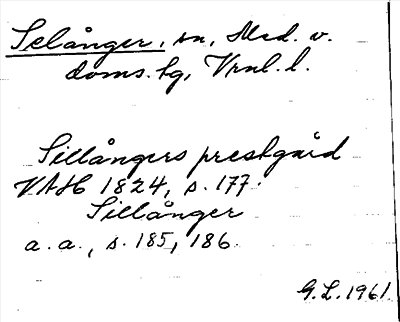 Selånger, sn, Med. v.
doms. hg, Vrnl. l.
Sillångers prestgård
VAH 1824, s. 177.
Sillånger
a. a., s. 185, 186.
G. L. 1961.